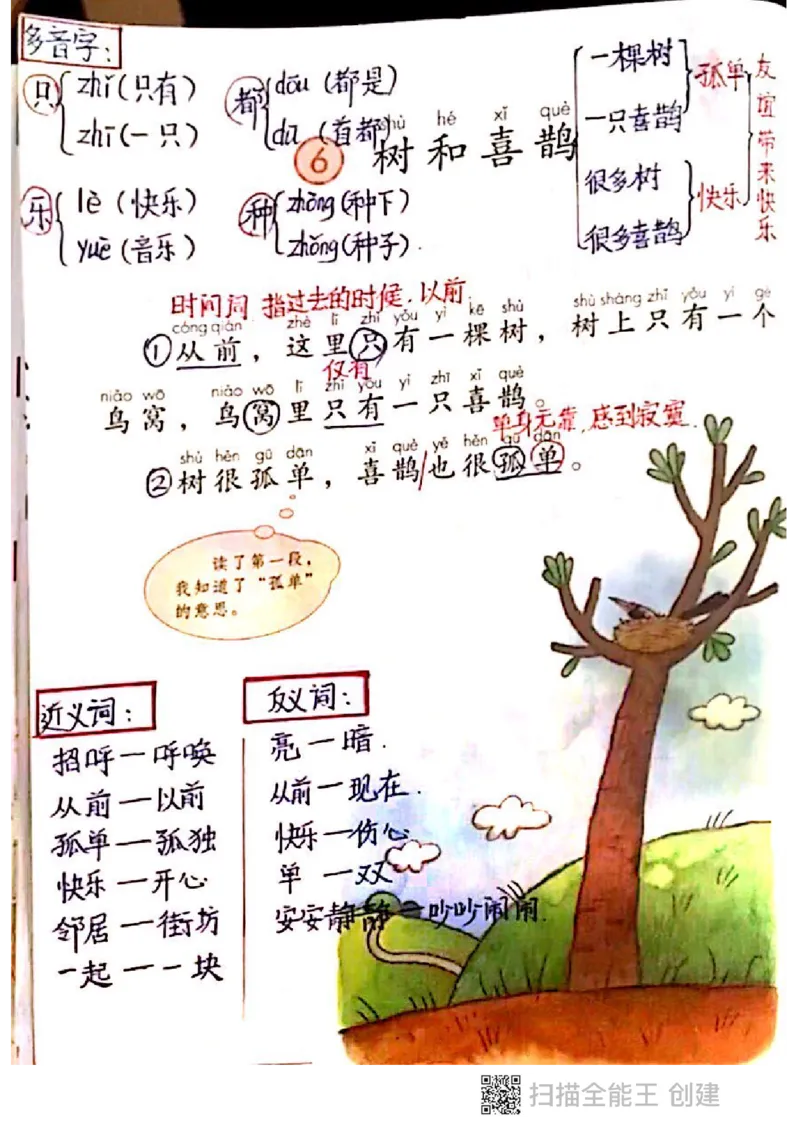 多音字：
只 zhǐ(只有)
zhī(一只)
都 dōu (都是)
dū (首都)
乐 lè (快乐)
yuè (音乐)
种 zhòng(种下)
zhǒng(种子).
shù hé xǐ què
6 树和喜鹊
一棵树
一只喜鹊
孤单
很多树
很多喜鹊
快乐
友谊带来快乐
时间词 指过去的时候，以前.
cóng qián zhè lǐ zhǐ yǒu yì kē shù shù shàng zhǐ yǒu yí gè
①从前，这里只有一棵树，树上只有一个
仅有
niǎo wō niǎo wō lǐ zhǐ yǒu yì zhī xǐ què
鸟窝，鸟窝里只有一只喜鹊。
单身无靠，感到寂寞.
shù hěn gū dān xǐ què yě hěn gū dān
②树很孤单，喜鹊/也很孤单。
读了第一段，
我知道了“孤单”
的意思。
近义词：
招呼—呼唤
从前—以前
孤单—孤独
快乐—开心
邻居—街坊
一起—一块
反义词：
亮—暗.
从前—现在.
快乐—伤心
单—双
安安静静—吵吵闹闹.
扫描全能王 创建